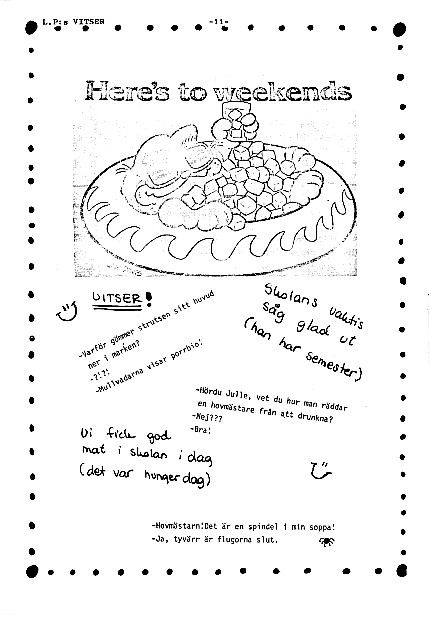 L.P:s VITSER
-11-
Here's to weekends
VITSER!
-Varför gömmer strutsen sitt huvud
ner i marken?
-?!?!
-Mullvadarna visar porrbio!
Skolans vaktis
såg glad ut
(han har semester)
-Hördu Julle, vet du hur man räddar
en hovmästare från att drunkna?
-Nej???
-Bra!
Vi fick god
mat i skolan i dag
(det var hungerdag)
-Hovmästarn!Det är en spindel i min soppa!
-Ja, tyvärr är flugorna slut.